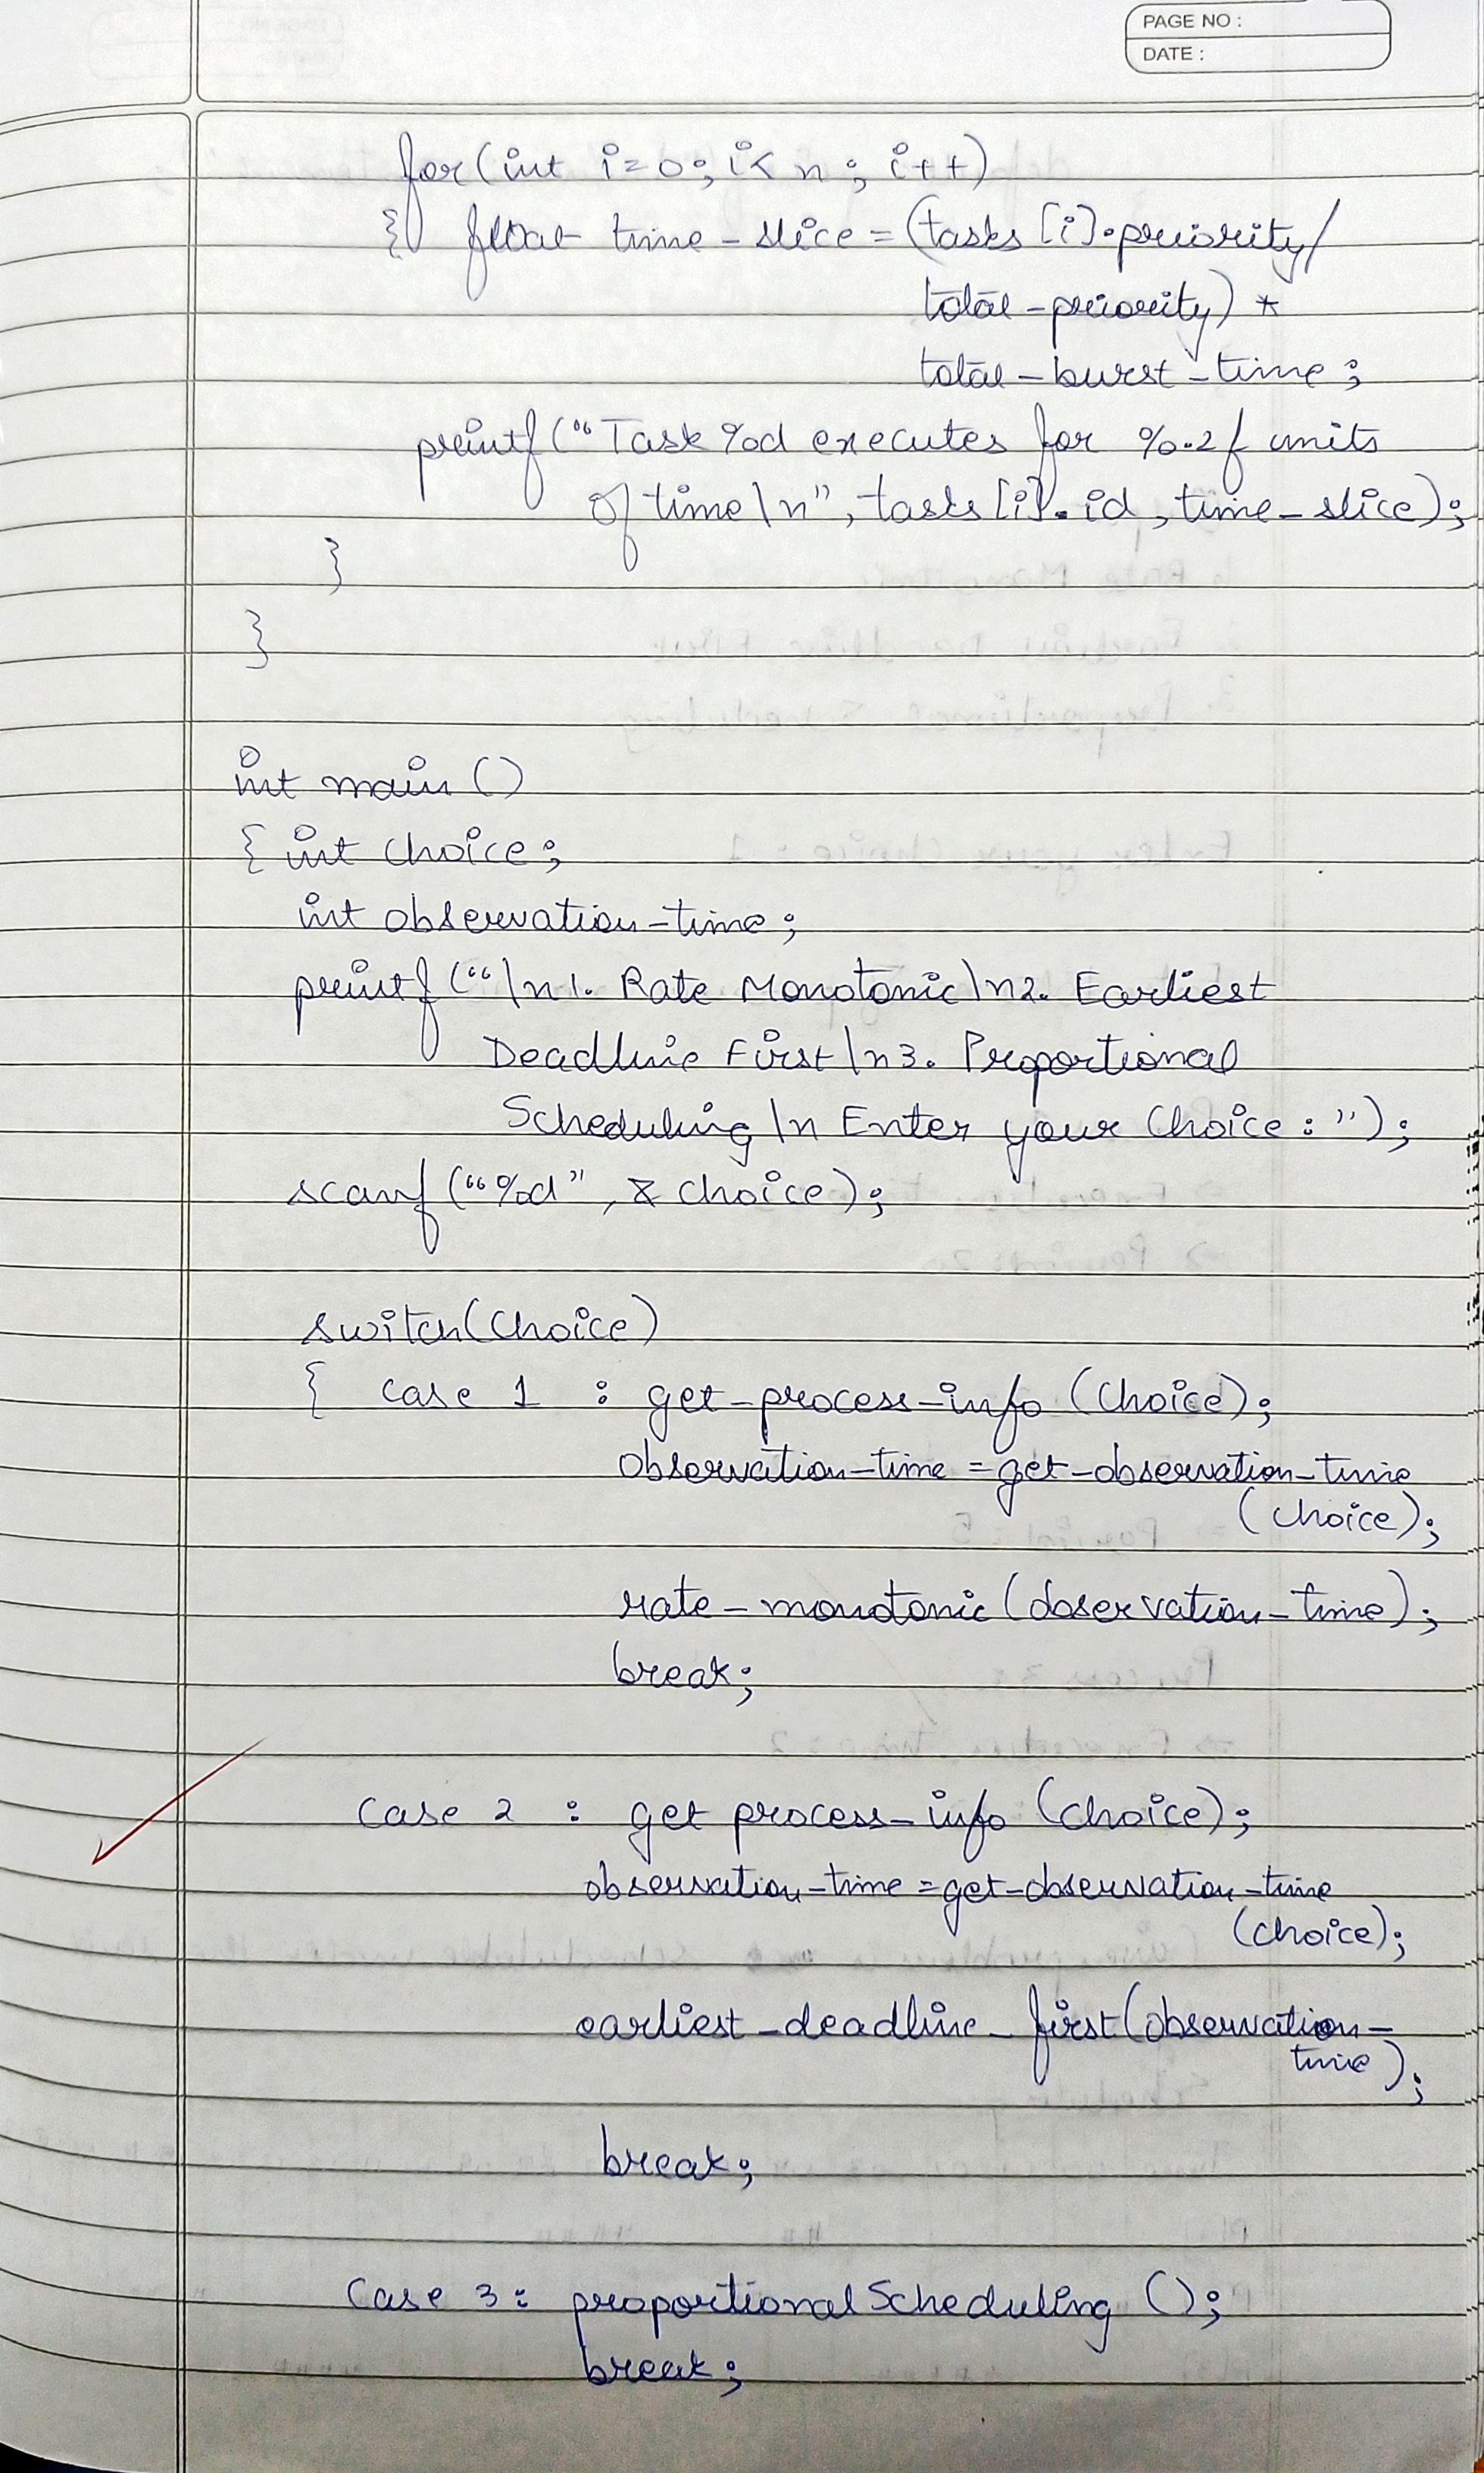 PAGE NO :
DATE :
for(int i=0; i<n; i++)
{ float time-slice = (tasks[i].priority/
total-priority) *
total-burst-time;
printf("Task %d executes for %.2f units
of time\n", tasks[i].id, time-slice);
}
}
int main()
{ int choice;
int observation-time;
printf("\n1. Rate Monotonic\n2. Earliest
Deadline First\n3. Proportional
Scheduling\n Enter your choice : ");
scanf("%d", &choice);
switch(choice)
{ case 1 : get-process-info (choice);
observation-time = get-observation-time
(choice);
rate-monotonic(observation-time);
break;
case 2 : get process-info (choice);
observation-time = get-observation-time
(choice);
earliest-deadline-first(observation-
time);
break;
case 3 : proportionalScheduling ();
break;